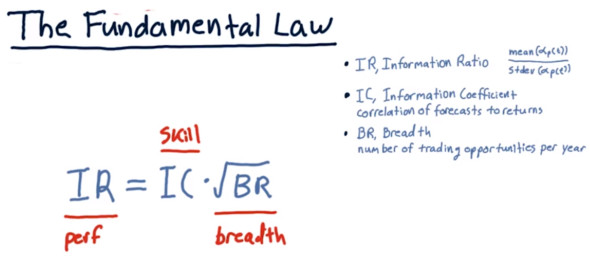 The Fundamental Law
• IR, Information Ratio mean(αp(t))
stdev(αp(t))
• IC, Information Coefficient
correlation of forecasts to returns
• BR, Breadth
number of trading opportunities per year
skill
IR = IC · √BR
perf breadth